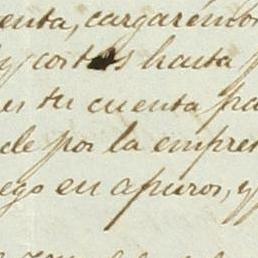 enta, cargarémos
y cortes hasta
es tu cuenta pa
de por la empres
ego en apuros, y